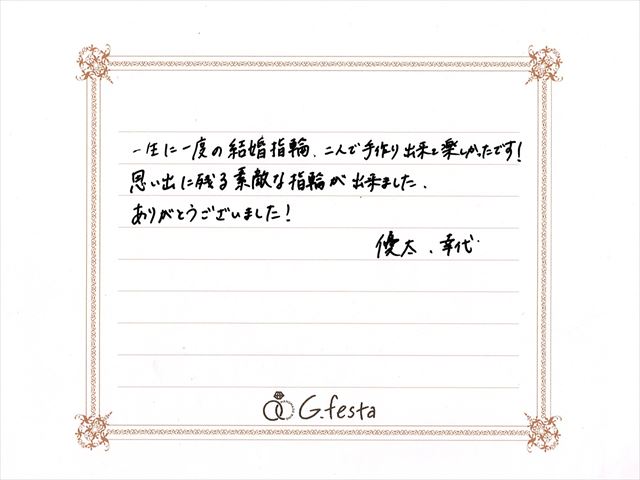 一生に一度の結婚指輪、二人で手作り出来て楽しかったです!
思い出に残る素敵な指輪が出来ました、
ありがとうございました!
優太、幸代
G.festa